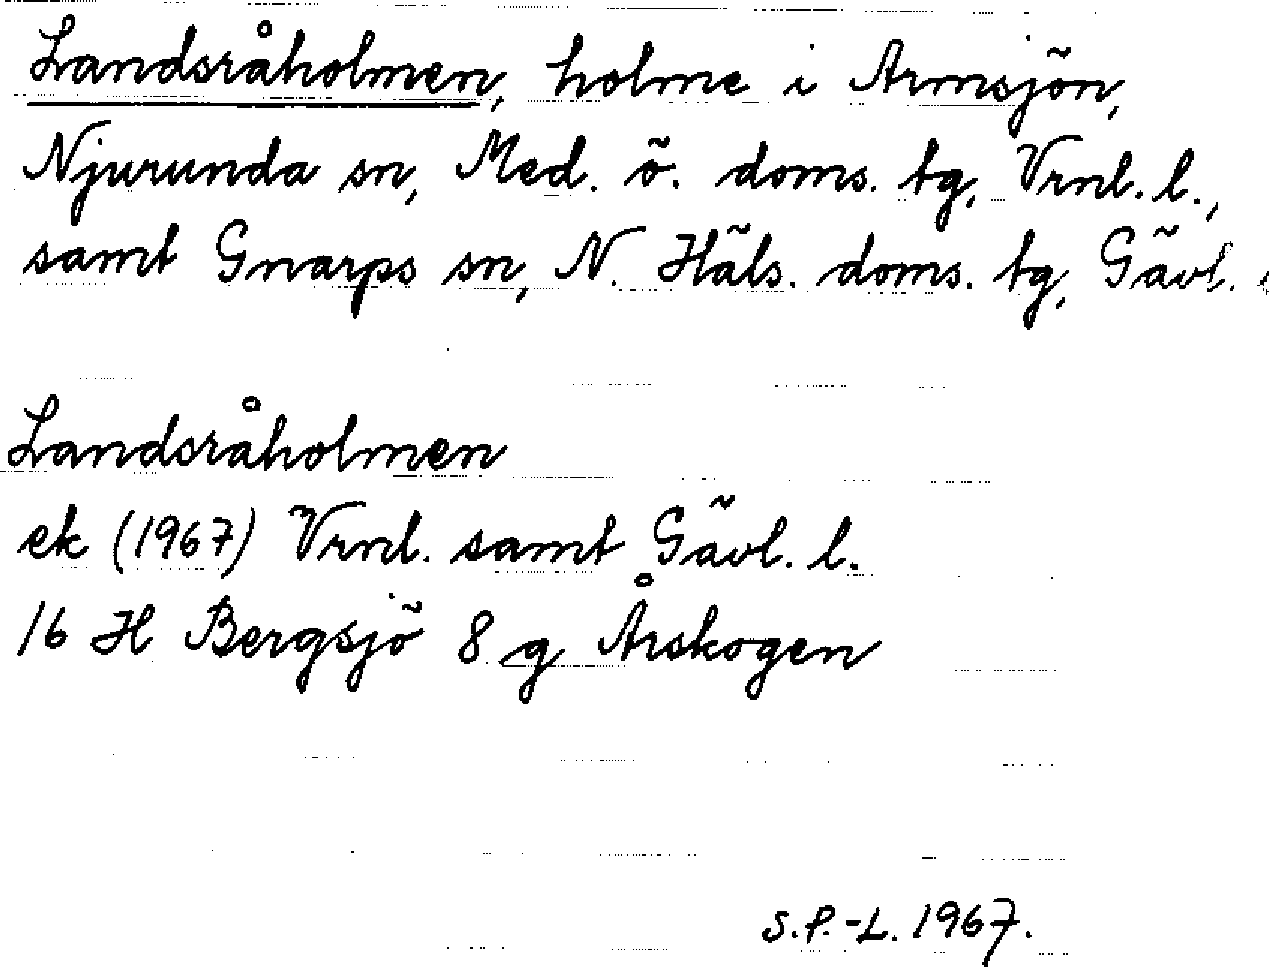 Landsråholmen, holme i Armsjön,
Njurunda sn, Med. ö. doms. tg, Vrnl. l.,
samt Gnarps sn, N. Häls. doms. tg, Gävl.
Landsråholmen
ek (1967) Vrnl. samt Gävl. l.
16 H Bergsjö 8 g Årskogen
S.P.-L. 1967.